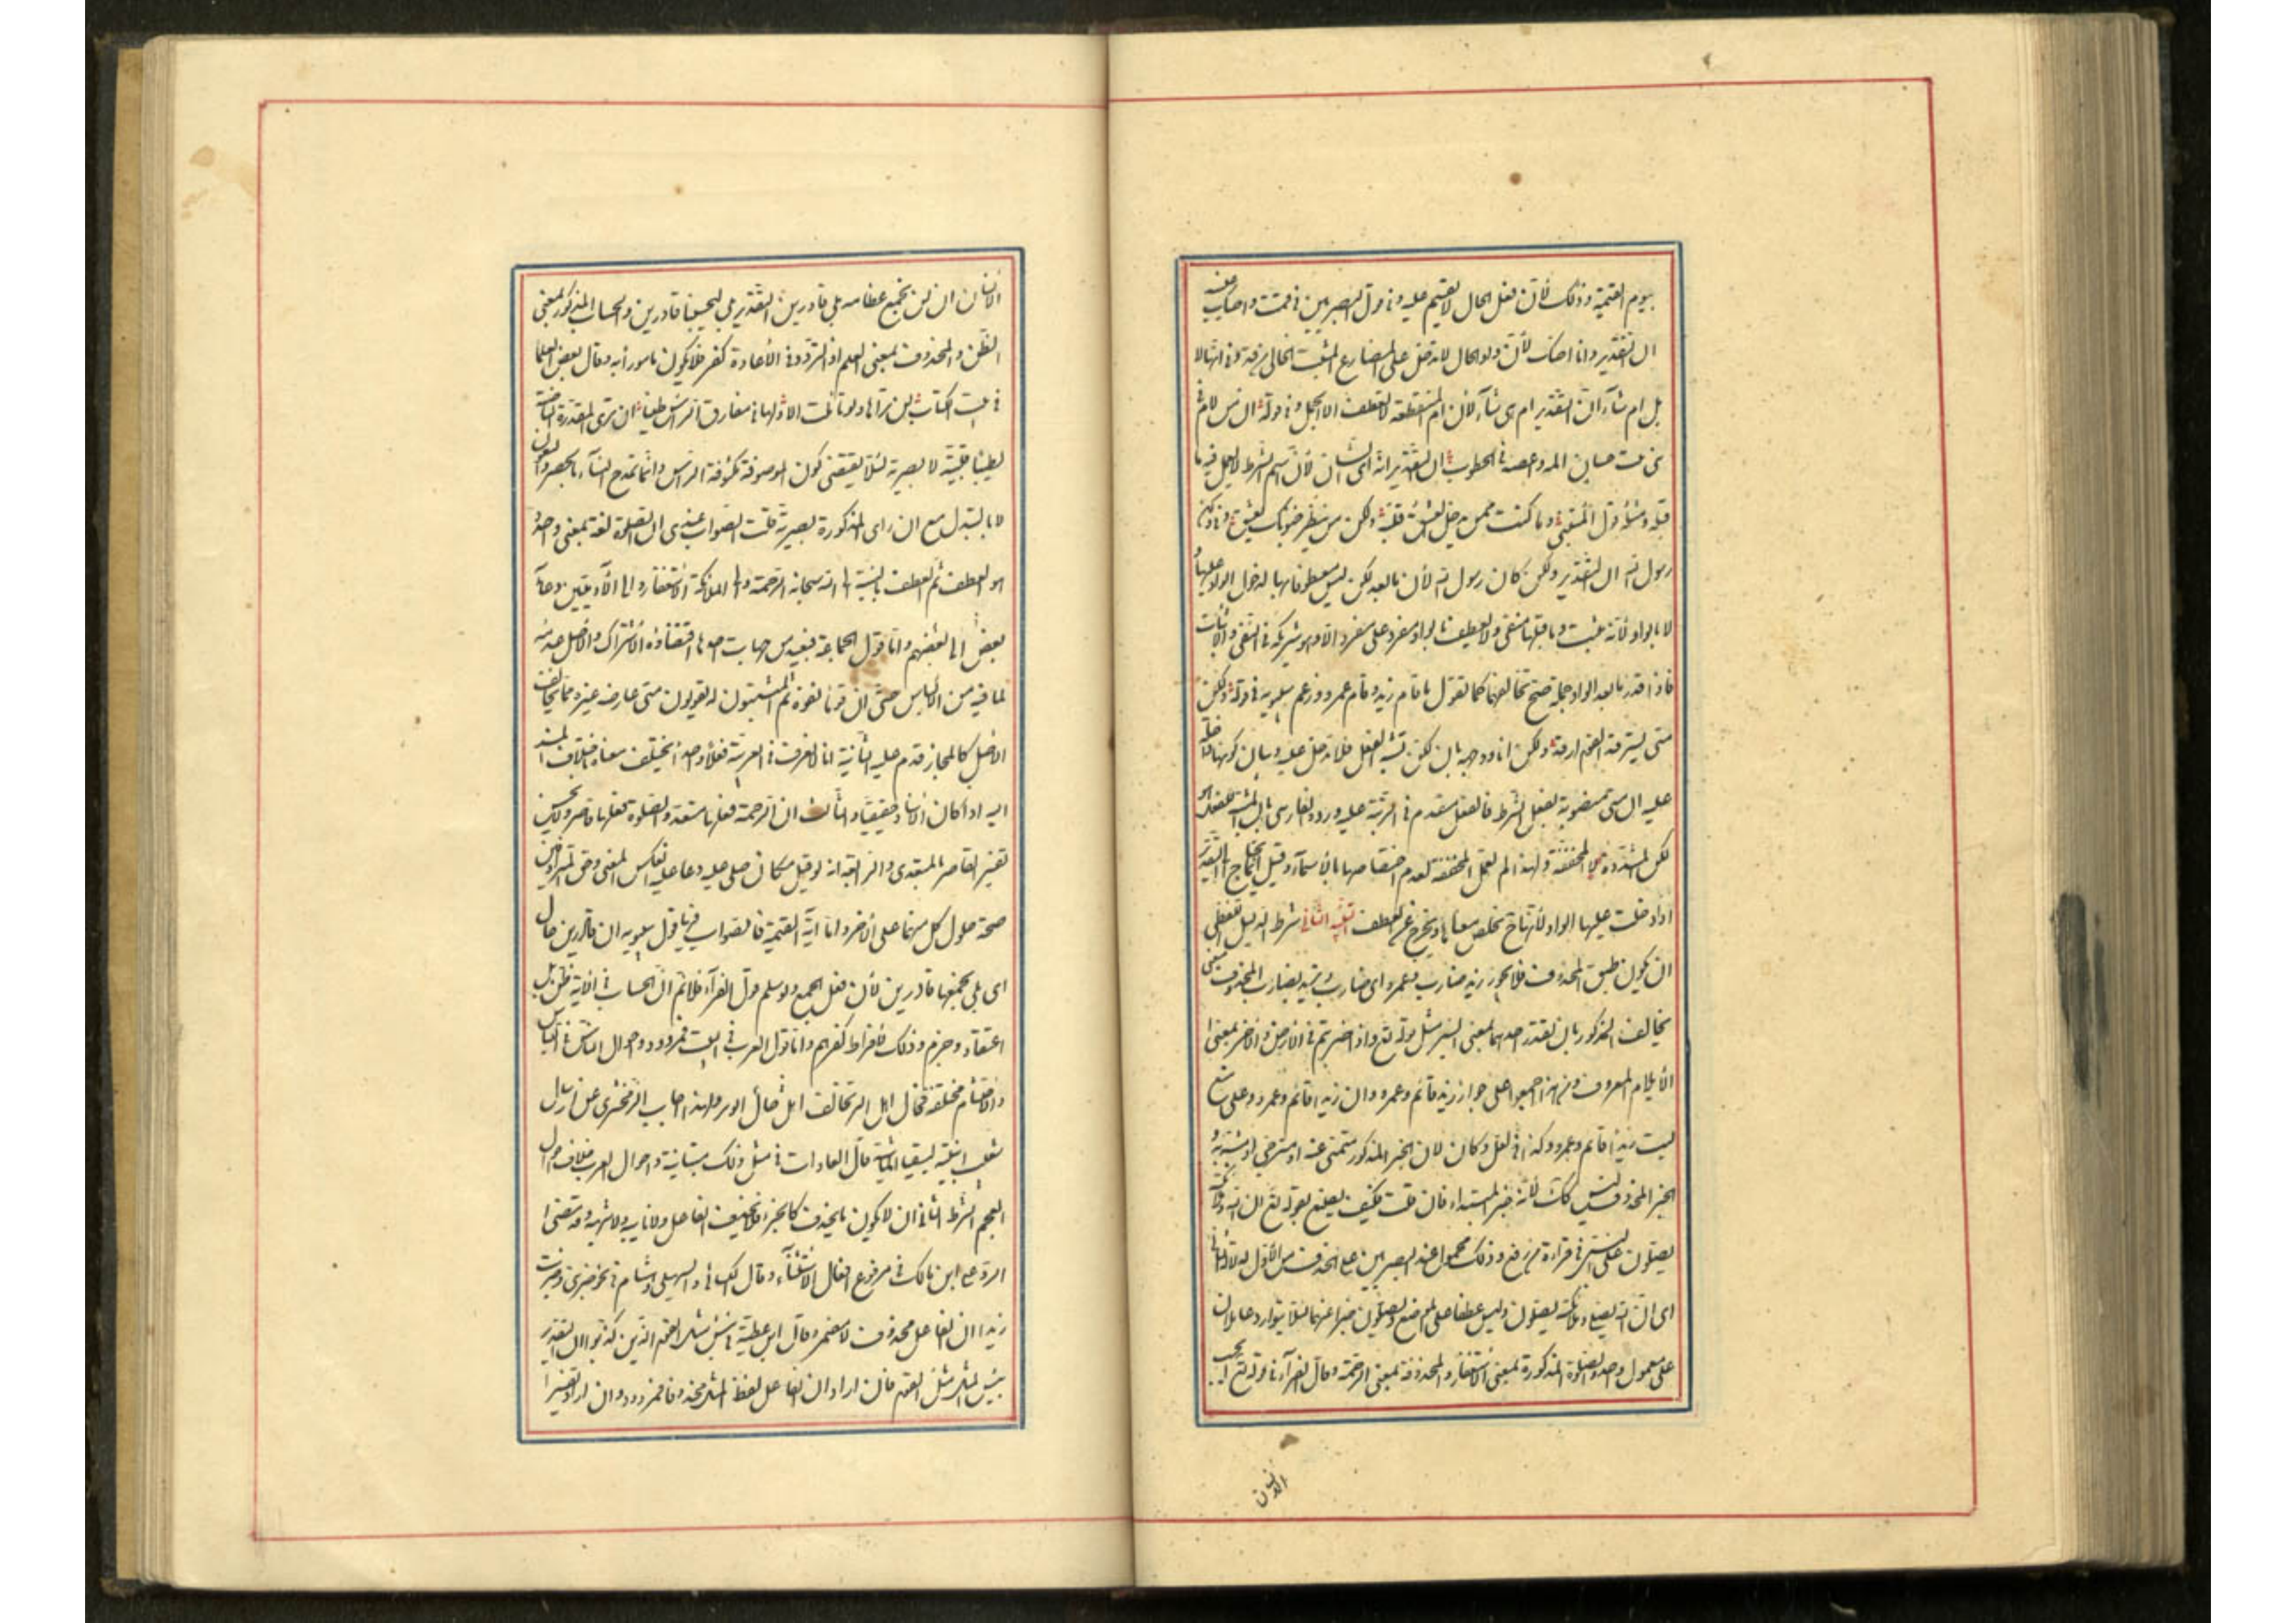 بيوم القيمة وذلك لأن فعل الحال لا يقسم عليه وفي قول البصريين في قمت واصك عينه
ان التقدير وانا اصك لأن واو الحال لا تدخل على المضارع المثبت الخالي من قد وفي انها لا
بل ام شاء ان التقدير ام هي شاء لأن ام المنقطعة لا تعطف الا الجمل وفي قوله ان من لام في
بني بنت حسان المه واعصه في الخطوب ان التقدير انه اي الشان لأن اسم الشرط لا يعمل فيه ما
قبله ومثله قول المتنبي وما كنت ممن يدخل العشق قلبه ولكن من ينظر جفونك يعشق وفي ولكن
رسول الله ان التقدير ولكن كان رسول الله لأن ما بعد لكن ليس معطوفا بها لدخول الواو عليها و
لا بالواو لأنه مثبت وما قبلها منفي ولا يعطف بالواو مفرد على مفرد الا وهو شريكه في النفي والاثبات
فاذا قدر ما بعد الواو جملة صح تخالفهما كما تقول ما قام زيد وقام عمرو وزعم سيبويه في قوله ولكن
متى يسترفد القوم ارفد ولكن انا ووجه بان لكن تشبه الفعل فلا تدخل عليه وبيان كونها داخلة
عليه ان متى منصوبة بفعل الشرط فالفعل مقدم في الرتبة عليه ورده الفارسي بأن المشبه للفعل هو
لكن المشددة لا المخففة ولهذا لم تعمل المخففة لعدم اختصاصها بالأسماء وقيل انما يحتاج الى التقدير
اذا دخلت عليها الواو لأنها ح تخلص معناها وتخرج عن العطف تنبيه الثاني شرط الدليل اللفظي
ان يكون طبق المحذوف فلا يجوز زيد ضارب وعمرو اي ضارب وتريد بضارب المحذوف معنى
يخالف المذكور بان تقدر احدهما بمعنى السير مثل قوله تع واذا ضربتم في الأرض والآخر بمعنى ا
الأيلام المعروف ومن هنا اجمعوا على جواز زيد قائم وعمرو وان زيدا قائم وعمرو وعلى منع
ليت زيدا قائم وعمرو وكذا في لعل وكان لان الخبر المذكور متمنى عنه او مترجى او مشبه به و
الخبر المحذوف ليس كذلك لأنه خبر المبتداء فان قلت فكيف يصنع بقوله تع ان الله وملائكته
يصلون على النبي في قراءة من رفع وذلك محمول عند البصريين على الحذف من الأول لدلالة الثاني
اي ان الله يصلي وملائكته يصلون وليس عطفا على الموضع ويصلون خبرا عنهما لئلا يتوارد عاملان
على معمول واحد والصلوة المذكورة بمعنى الاستغفار والمحذوفة بمعنى الرحمة وقال الفراء في قوله تع ايحسب
الانسان
الأنسان ان لن نجمع عظامه بلى قادرين التقدير بلى ليحسبنا قادرين والحساب المذكور بمعنى
الظن والمحذوف بمعنى العلم اذ التردد في الأعادة كفر فلا يكون مامورا به وقال بعض العلماء
في بيت الكتاب لن تراها ولو تاملت الا ولها في مفارق الراس طيبا ان ترى المقدرة الناصبة
لطيبا قلبية لا بصرية لئلا يقتضي كون الموصوفة مكشوفة الراس وانما تمدح النساء بالخصر والصون
لا بالتبذل مع ان راى المذكورة بصرية قلت الصواب عندي ان الصلوة لغة بمعنى واحد و
هو العطف ثم العطف بالنسبة الى الله سبحانه الرحمة والى الملائكة الاستغفار والى الآدميين دعاء
بعض الى بعضهم واما قول الجماعة فبعيد من جهات احدها اقتضاؤه الاشتراك والأصل عدمه
لما فيه من الالباس حتى ان قوما نفوه ثم المثبتون له يقولون متى عارضه غيره مما يخالف
الأصل كالمجاز قدم عليه الثانية انا لا نعرف في العربية فعلا واحدا يختلف معناه باختلاف المسند
اليه اذا كان الأسناد حقيقيا والثالث ان الرحمة فعلها متعد والصلوة فعلها قاصر ولا يحسن
تفسير القاصر بالمتعدي والرابعة انه لو قيل مكان صلى عليه دعا عليه انعكس المعنى وحق المترادفين
صحة حلول كل منهما على الأخر واما اية القيمة فالصواب فيها قول سيبويه ان قادرين حال
اي بلى نجمعها قادرين لأن فعل الجمع ولو سلم قول الفراء فلا نم ان الحساب في الآية ظن بل
اعتقاد وجزم وذلك لأفراط كفرهم واما قول العرب في البيت فمردود واحوال الناس في اللباس
والاحتشام مختلفة فحال اهل المدر تخالف اهل حال الوبر ولهذا اجاب الزمخشري عن ارسال
شعيب ابنتيه لسقيا الماشية قال العادات في مثل ذلك متباينة واحوال العرب خلاف احوال
العجم الشرط الثاني ان لا يكون ما يحذف كالجزء فلا يحذف الفاعل ولا نايبه ولا شبهه وقد مضى ا
الرد على ابن مالك في مرفوع افعال الاستثناء وقال الكسائي والسهيلي وهشام في نحو ضربني وضربت
زيدا ان الفاعل محذوف لا مضمر وقال ابن عطية في بئس مثل القوم الذين كذبوا ان التقدير
بئس المثل مثل القوم فان اراد ان الفاعل لفظ المثل محذوفا فمردود وان اراد تفسير ا